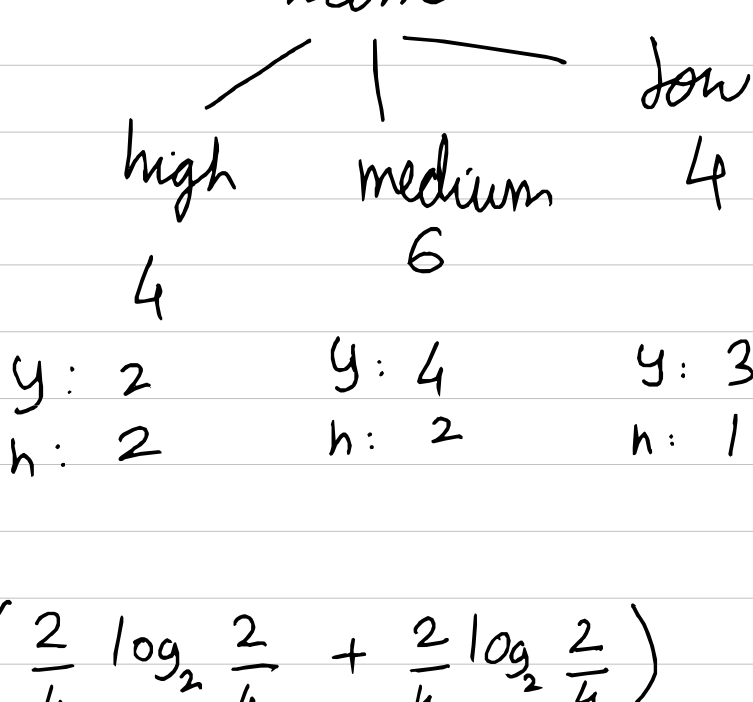 high medium low
4 6 4
y: 2 y: 4 y: 3
n: 2 n: 2 n: 1
2/4 log₂ 2/4 + 2/4 log₂ 2/4 )